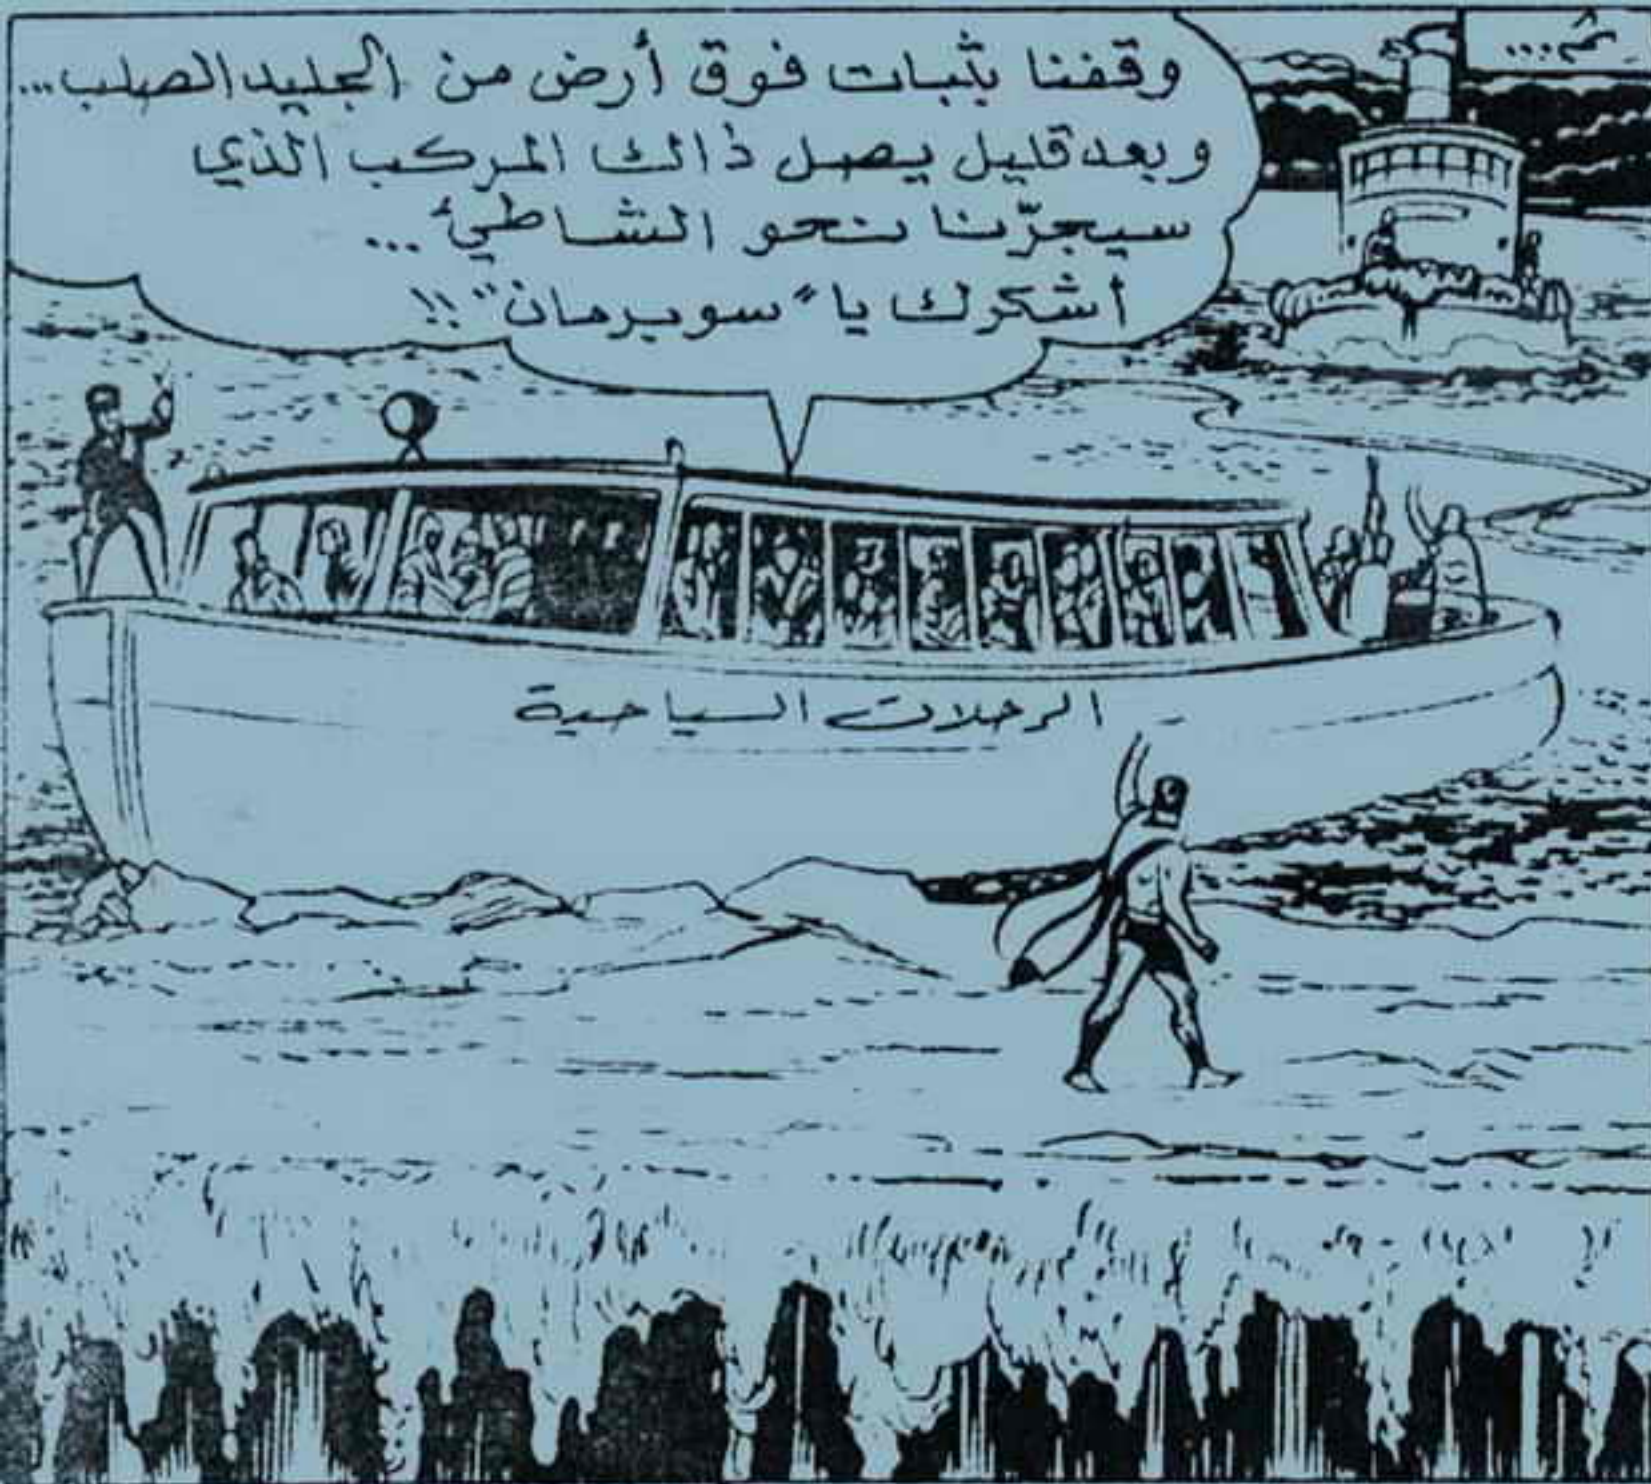 ثم...
وقفنا بثبات فوق أرض من الجليد الصلب...
وبعد قليل يصل ذالك المركب الذي
سيجرّنا نحو الشاطئ ...
أشكرك يا "سوبرمان" !!
الرحلات السياحية